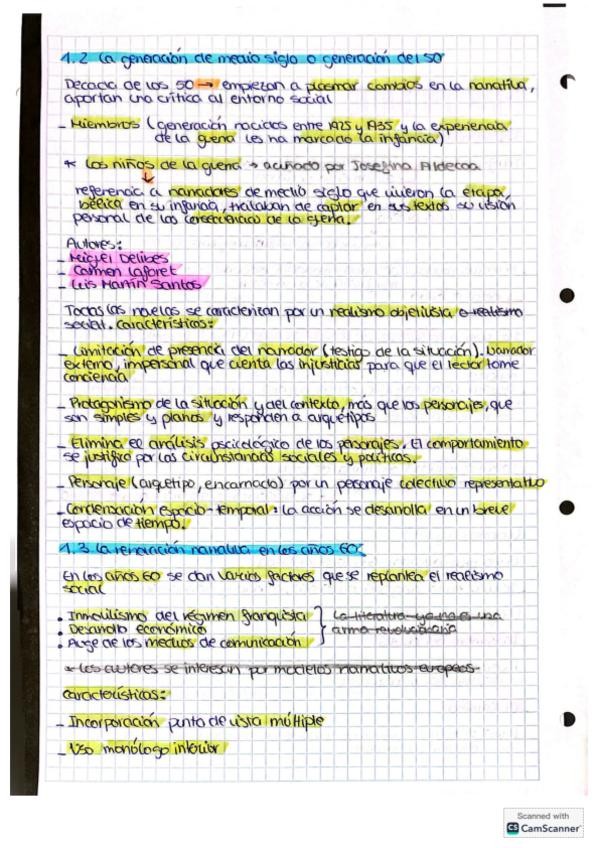 1.2 La generación de medio siglo o generación del 50
Década de los 50 → empiezan a plasmar cambios en la narrativa,
aportan una crítica al entorno social
- Miembros (generación nacidos entre 1925 y 1935 y la experiencia
de la guerra les ha marcado la infancia)
* Los niños de la guerra → acuñado por Josefina Aldecoa
↓
referencia a narradores de medio siglo que vivieron la etapa
bélica en su infancia, trataban de captar en sus textos su visión
personal de las consecuencias de la guerra.
Autores:
- Miguel Delibes
- Carmen Laforet
- Luis Martín Santos
Todas las novelas se caracterizan por un realismo objetivista o realismo
social. Características:
- Limitación de presencia del narrador (testigo de la situación). Narrador
externo, impersonal que cuenta las injusticias para que el lector tome
conciencia
- Protagonismo de la situación y del contexto, más que los personajes, que
son simples y planos y responden a arquetipos
- Elimina el análisis psicológico de los personajes. El comportamiento
se justifica por las circunstancias sociales y políticas.
- Personaje (arquetipo, encarnado) por un personaje colectivo representativo
- Condensación espacio-temporal: la acción se desarrolla en un breve
espacio de tiempo.
1.3 La renovación narrativa en los años 60
En los años 60 se dan varios factores que se replantea el realismo
social
• Inmovilismo del régimen franquista } La literatura ya no es una
• Desarrollo económico arma revolucionaria
• Auge de los medios de comunicación
* Los autores se interesan por modelos narrativos europeos
Características:
- Incorporación punto de vista múltiple
- Uso monólogo interior
Scanned with
CS CamScanner